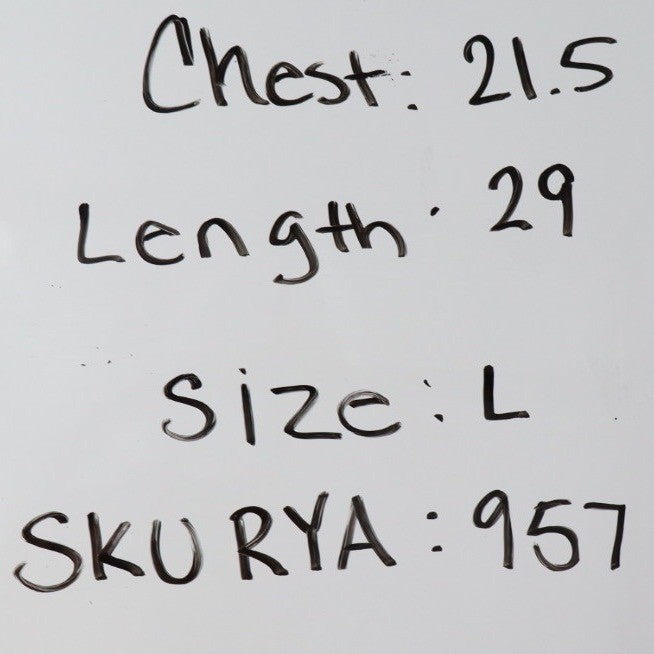 Chest: 21.5
Length: 29
Size: L
SKU RYA: 957